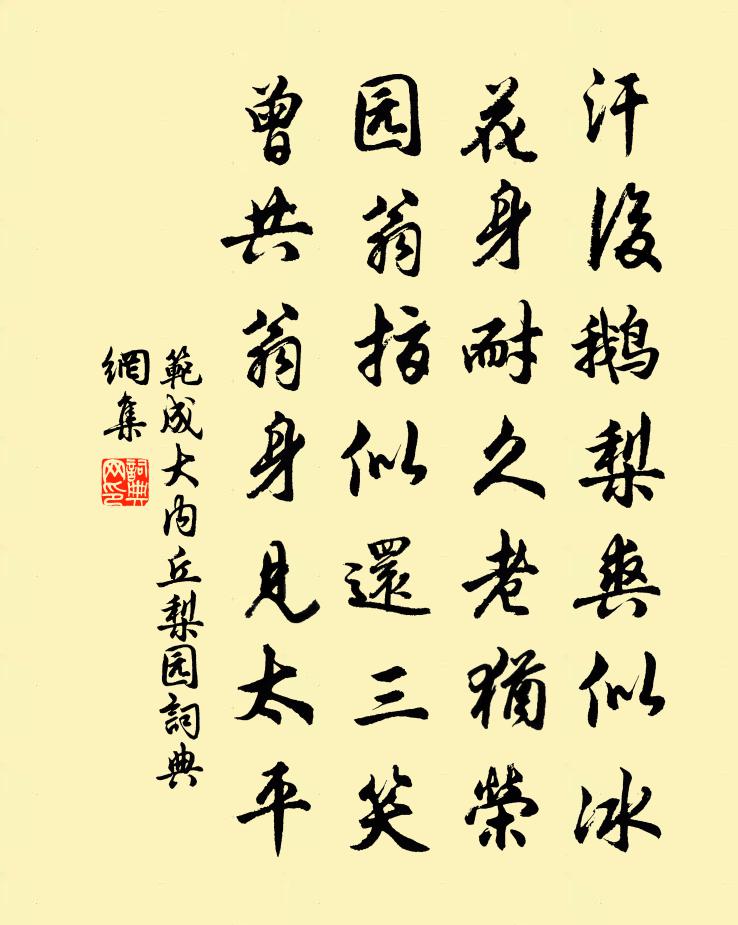 汗後鵝梨爽似冰
花身耐久老猶榮
园翁指似還三笑
曾共翁身見太平
範成大内丘梨园詞典
網集
詞典网印